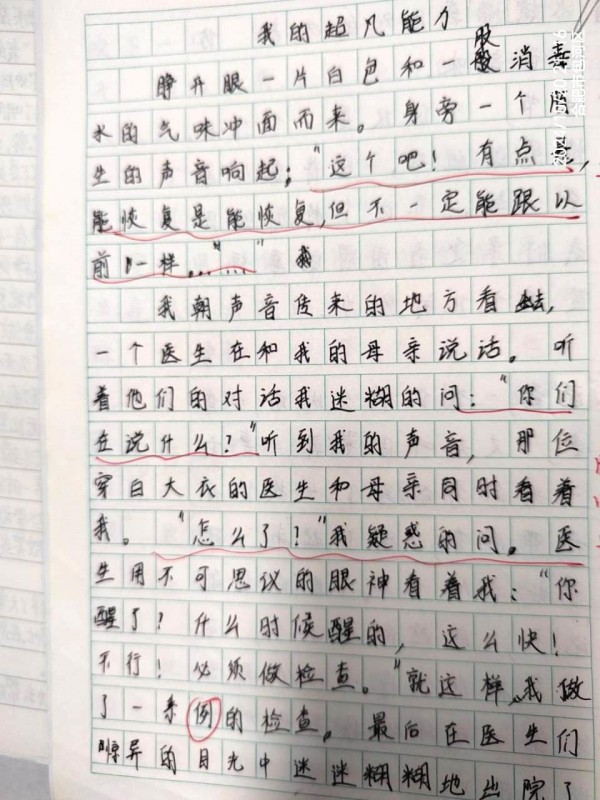 我的超凡能力
睁开眼一片白包和一股消毒
水的气味冲面而来。身旁一个医
生的声音响起:"这个吧!有点
能恢复是能恢复,但不一定能跟以
前一样……"
我朝声音传来的地方看去,
一个医生在和我的母亲说话。听
着他们的对话我迷糊的问:"你们
在说什么?"听到我的声音,那位
穿白大衣的医生和母亲同时看着
我。"怎么了?"我疑惑的问。医
生用不可思议的眼神看着我:"你
醒了?什么时候醒的,这么快!
不行!必须做检查。"就这样,我做
了一系例的检查。最后在医生们
惊异的目光中迷迷糊糊地出院了